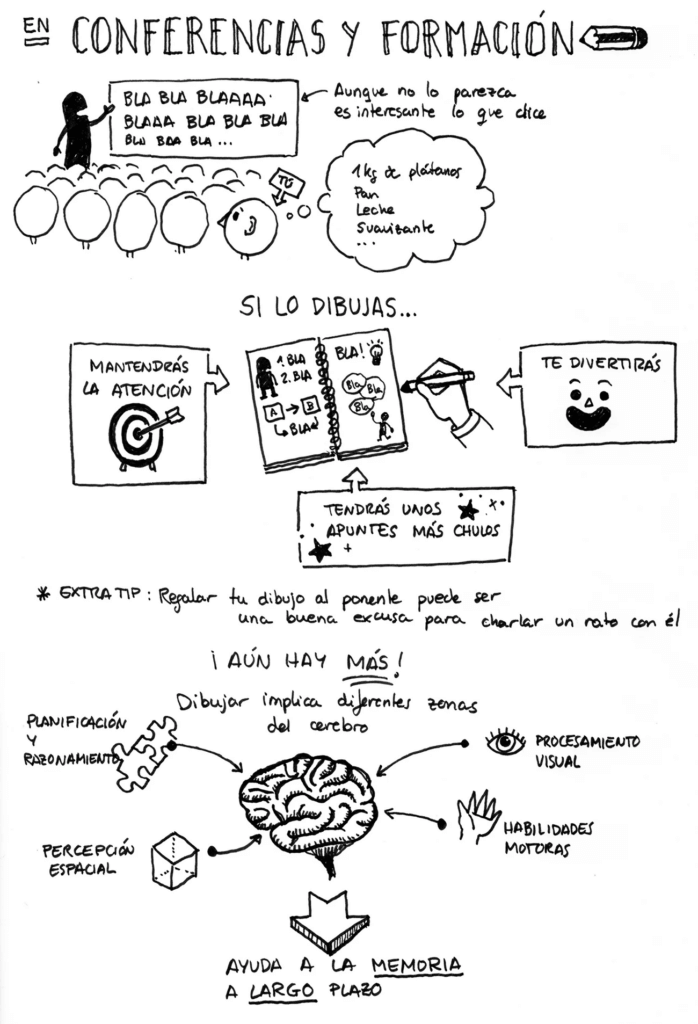 EN CONFERENCIAS Y FORMACIÓN
BLA BLA BLAAAA
BLAAA BLA BLA BLA
BLA BLA BLA ...
Aunque no lo parezca
es interesante lo que dice
TÚ
1 kg de plátanos
Pan
Leche
Suavizante
...
SI LO DIBUJAS...
MANTENDRÁS
LA ATENCIÓN
1. BLA
2. BLA
A → B
BLA
BLA!
Bla
Bla
Bla
TE DIVERTIRÁS
TENDRÁS UNOS
APUNTES MÁS CHULOS
* EXTRA TIP: Regalar tu dibujo al ponente puede ser
una buena excusa para charlar un rato con él
¡AÚN HAY MÁS!
Dibujar implica diferentes zonas
del cerebro
PLANIFICACIÓN
Y
RAZONAMIENTO
PROCESAMIENTO
VISUAL
PERCEPCIÓN
ESPACIAL
HABILIDADES
MOTORAS
AYUDA A LA MEMORIA
A LARGO PLAZO